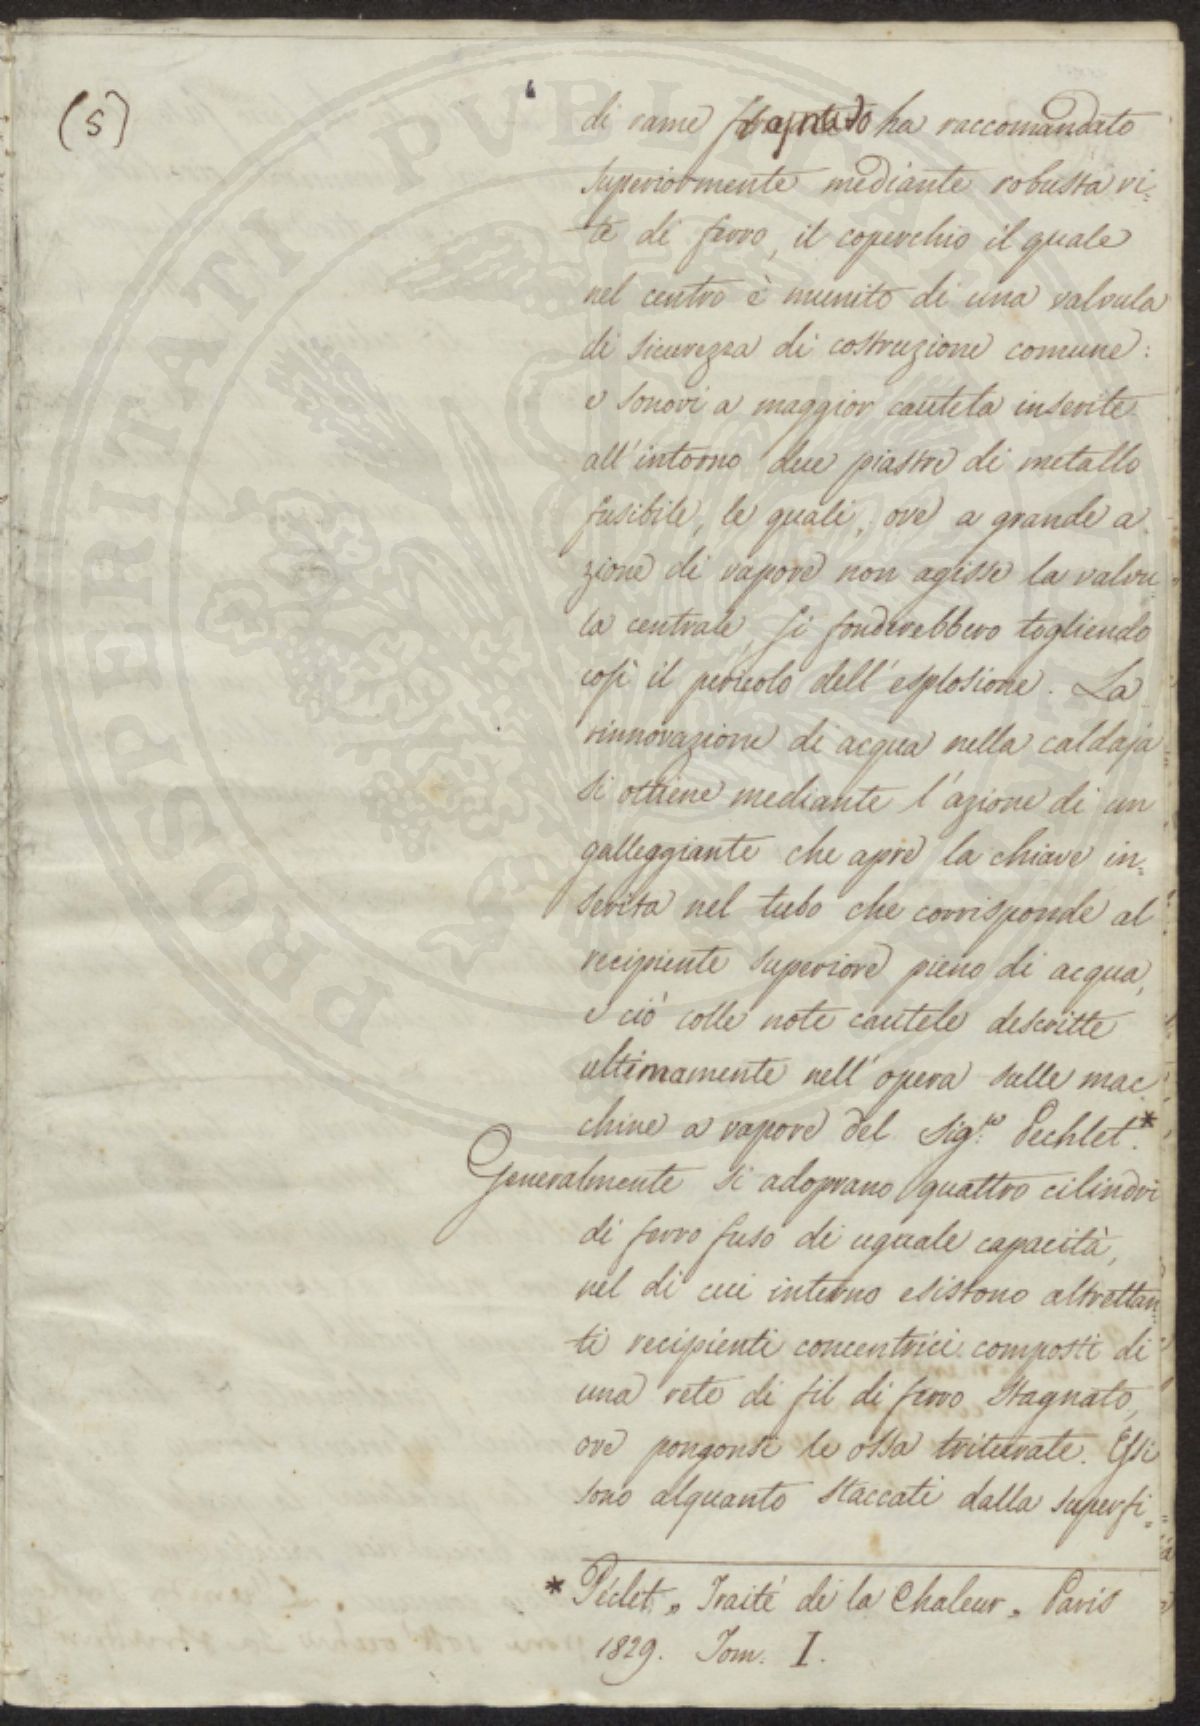 (5)
di rame ha raccomandato
superiormente mediante robusta vi-
te di ferro, il coperchio il quale
nel centro è munito di una valvula
di sicurezza di costruzione comune:
e sonovi a maggior cautela inserite
all'intorno due piastre di metallo
fusibile, le quali, ove a grande a
zione di vapore non agisse la valvu-
la centrale, si fonderebbero togliendo
così il pericolo dell'esplosione. La
rinnovazione di acqua nella caldaja
si ottiene mediante l'azione di un
galleggiante che apre la chiave in-
serita nel tubo che corrisponde al
recipiente superiore pieno di acqua,
e ciò colle note cautele descritte
ultimamente nell'opera sulle mac
chine a vapore del Sig.re Pechlet.*
Generalmente si adoprano quattro cilindri
di ferro fuso di uguale capacità,
nel di cui interno esistono altrettan-
ti recipienti concentrici composti di
una rete di fil di ferro stagnato,
ove pongonsi le ossa triturate. Essi
sono alquanto staccati dalla superfi-
* Péclet „ Traité de la Chaleur „ Paris
1829. Tom. I.
PROSPERITATI PUBLICAE